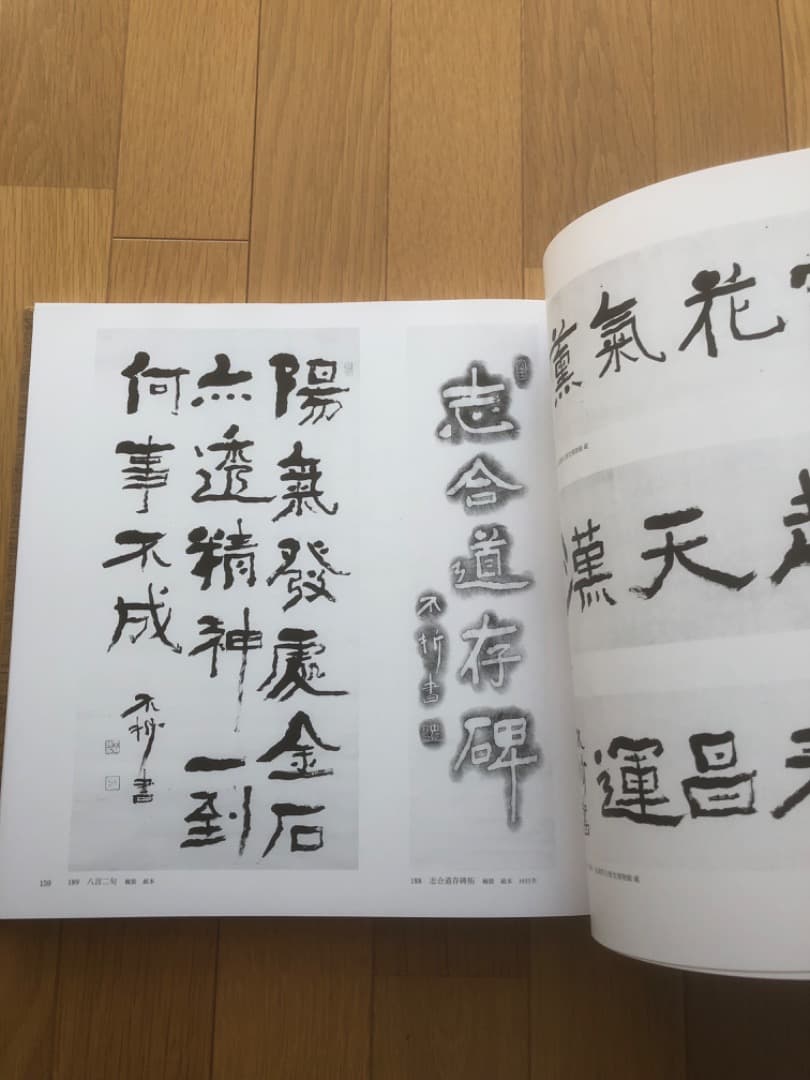 花氣薰
天漢
昌運
志合道存碑
不折書
188 志合道存碑拓 軸装 紙本
陽氣發處金石
亦透精神一到
何事不成
不折書
189 八言二句 軸装 紙本